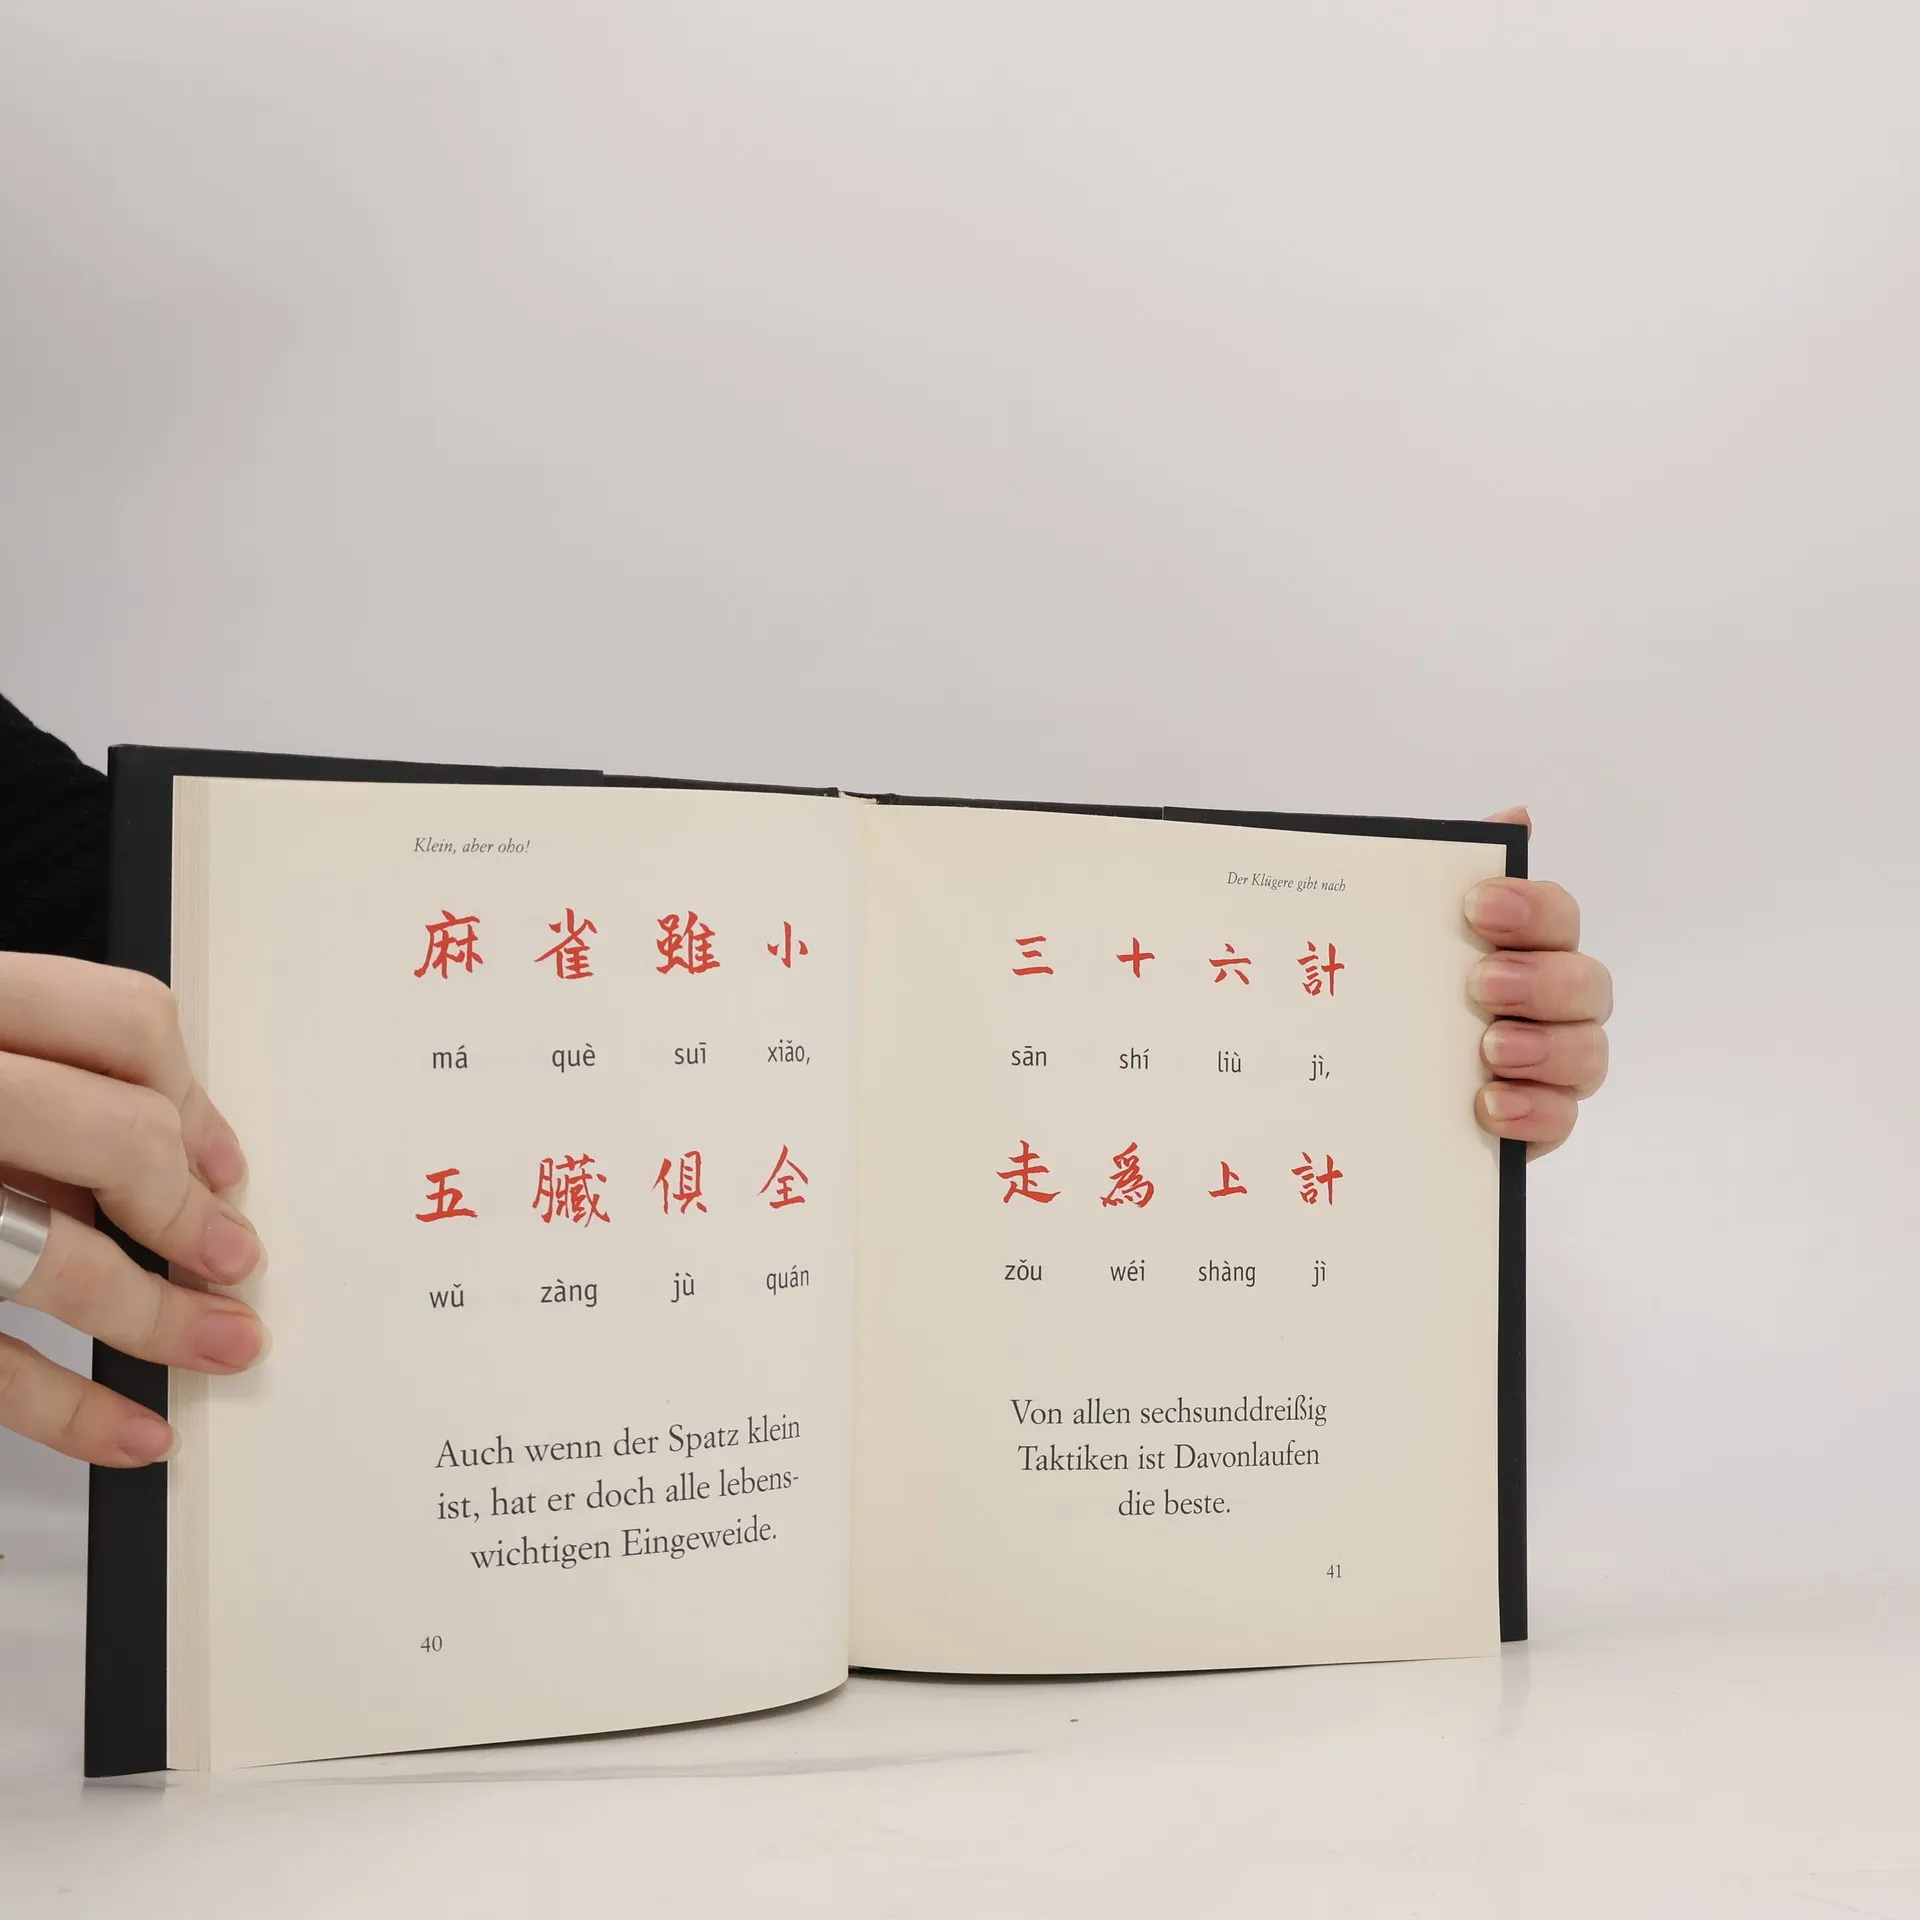 Klein, aber oho!
麻 雀 雖 小
má què suī xiǎo,
五 臟 俱 全
wǔ zàng jù quán
Auch wenn der Spatz klein
ist, hat er doch alle lebens-
wichtigen Eingeweide.
40
Der Klügere gibt nach
三 十 六 計
sān shí liù jì,
走 爲 上 計
zǒu wéi shàng jì
Von allen sechsunddreißig
Taktiken ist Davonlaufen
die beste.
41